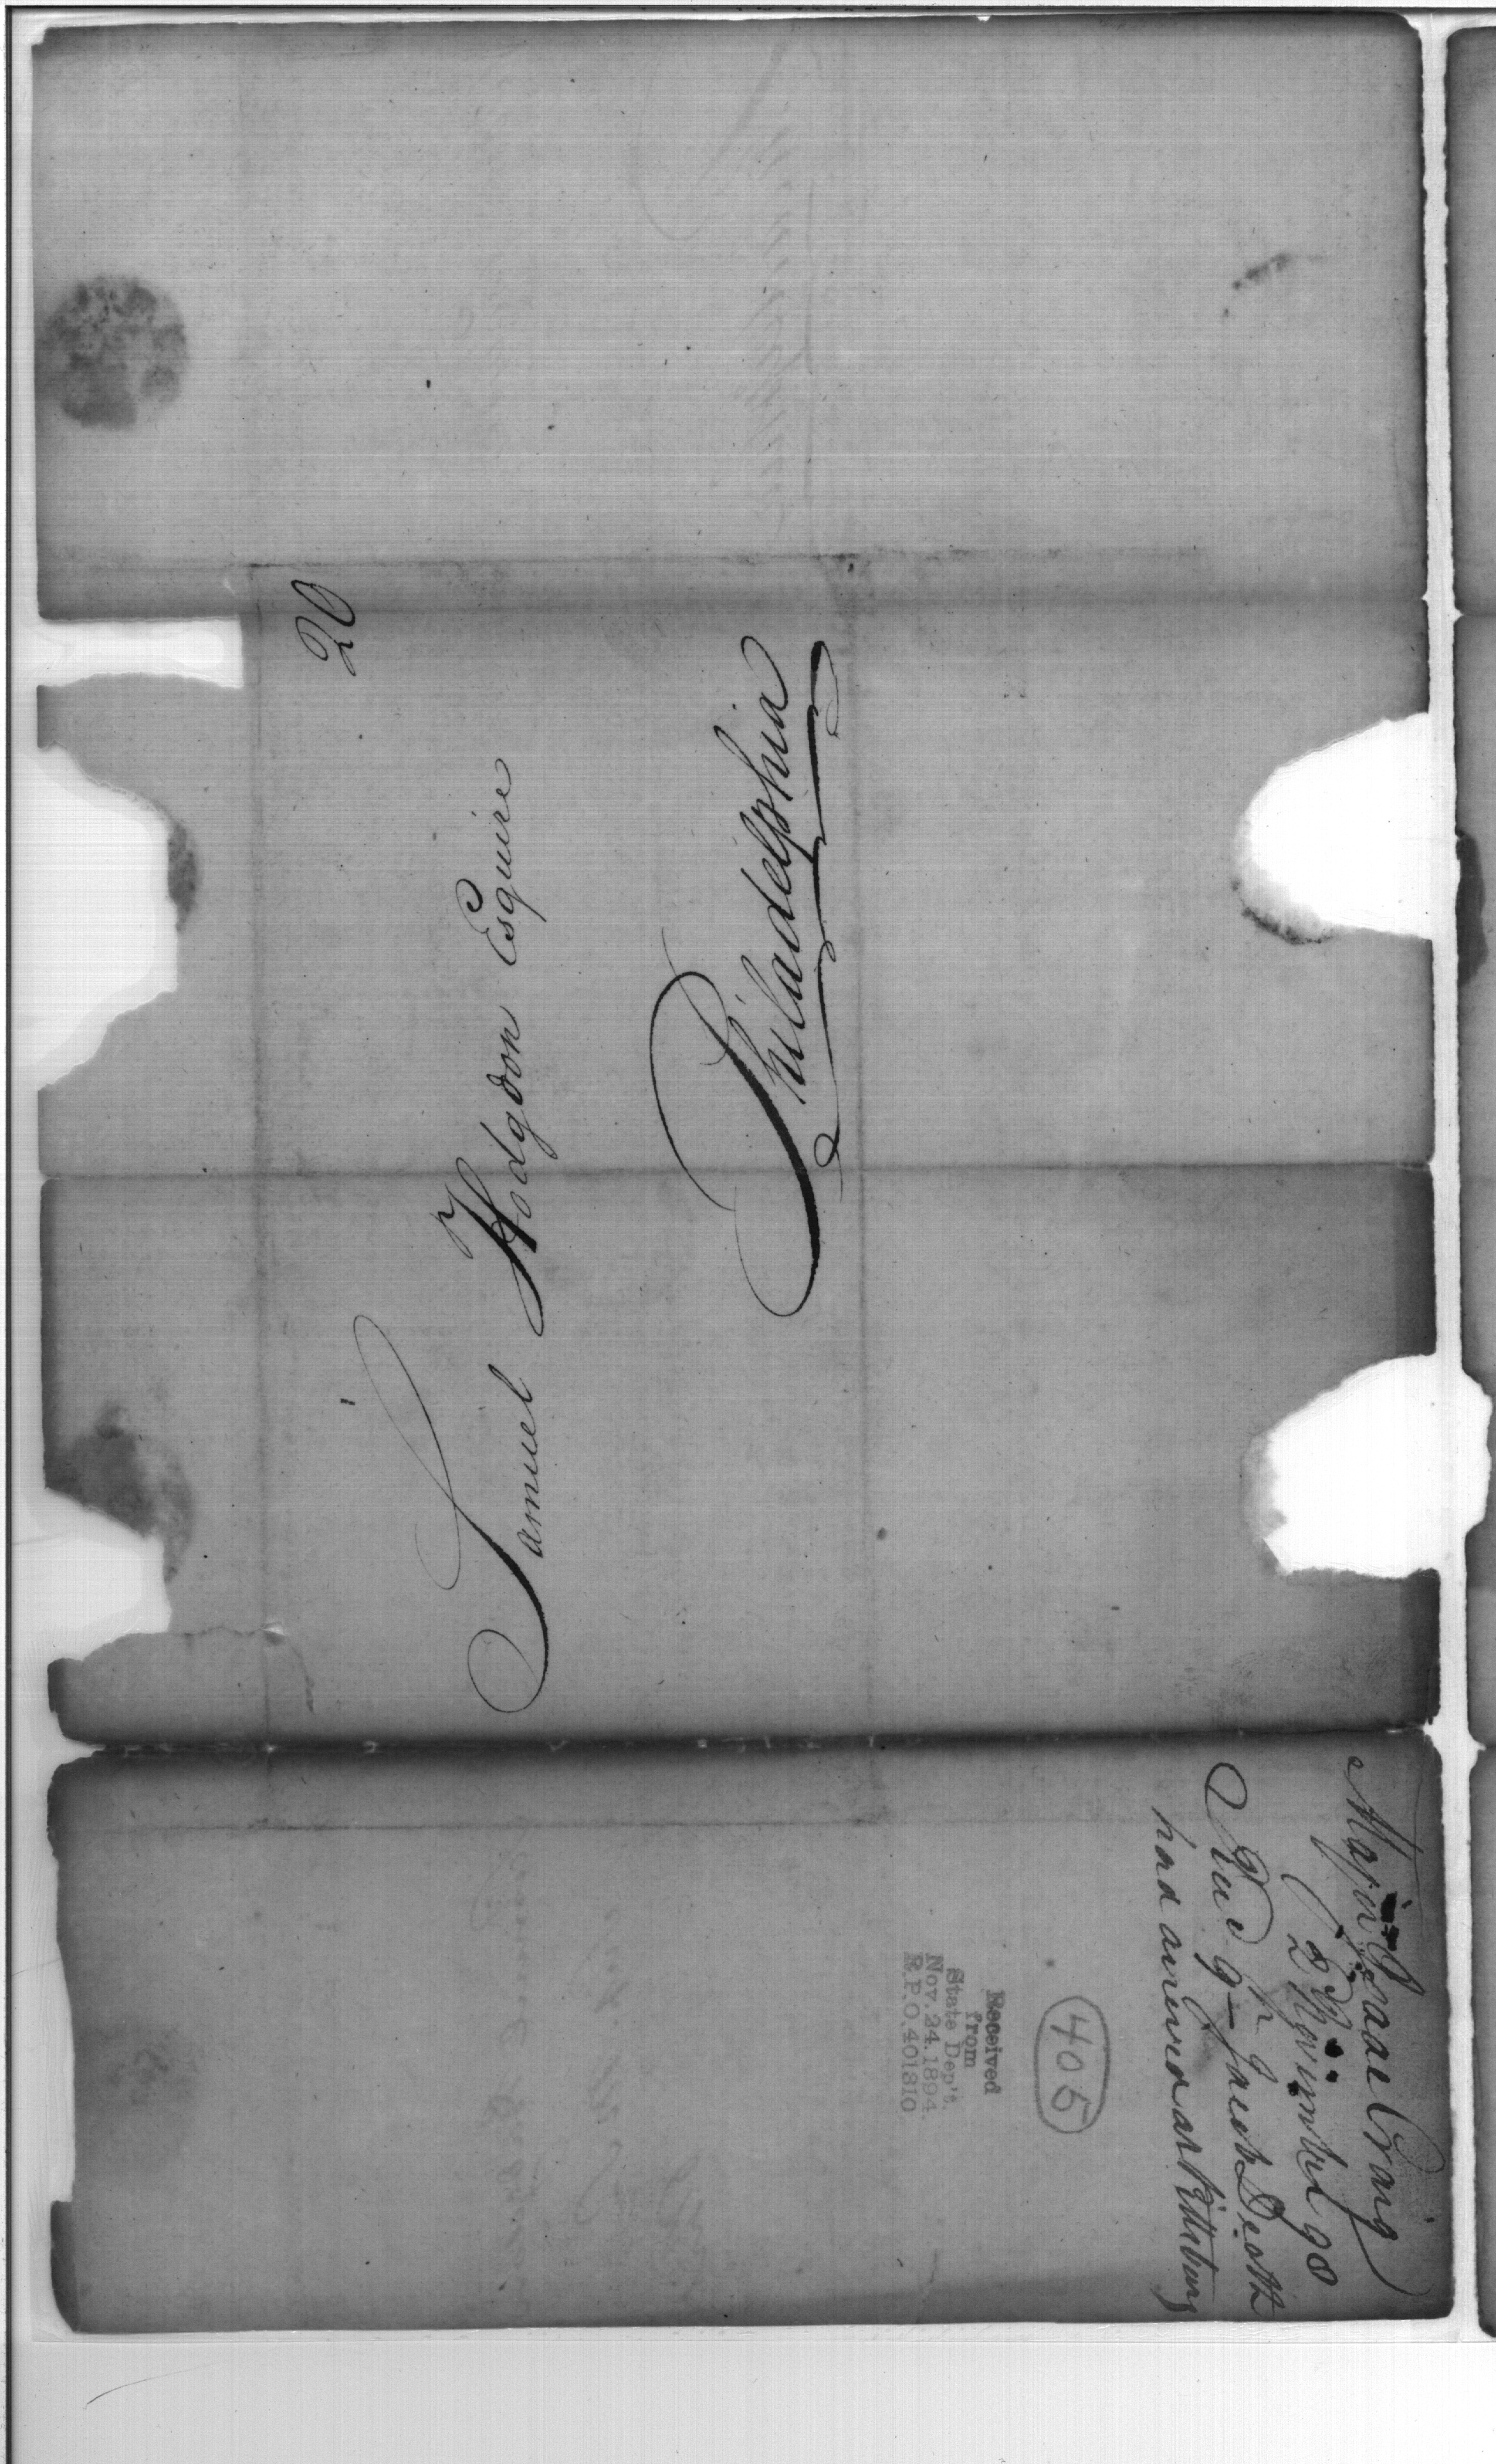 20
Samuel Hodgdon Esquire
Philadelphia
Major Isaac Craig
2d November 98
Recd 9th Jacob
had arrived at Pittsburg
405
Received
from
State Dep't.
Nov. 24. 1894.
R.P.O. 401810